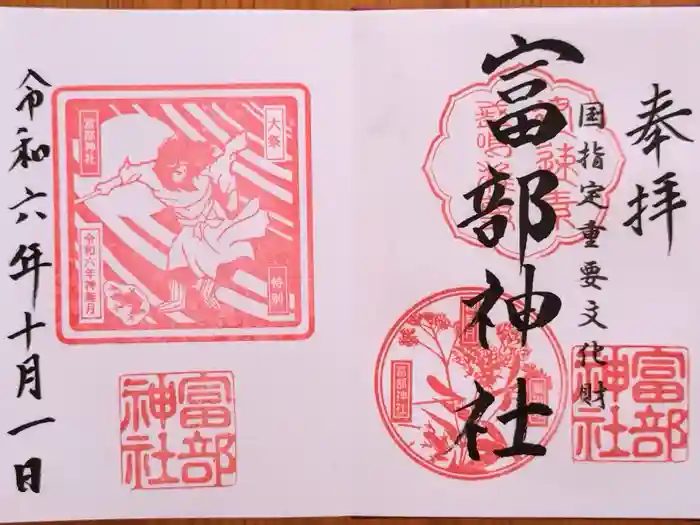 奉拝
国指定重要文化財
富部神社
富部神社
富部神社
令和六年十月一日
大祭
富部神社
特別
令和六年神無月
富部神社